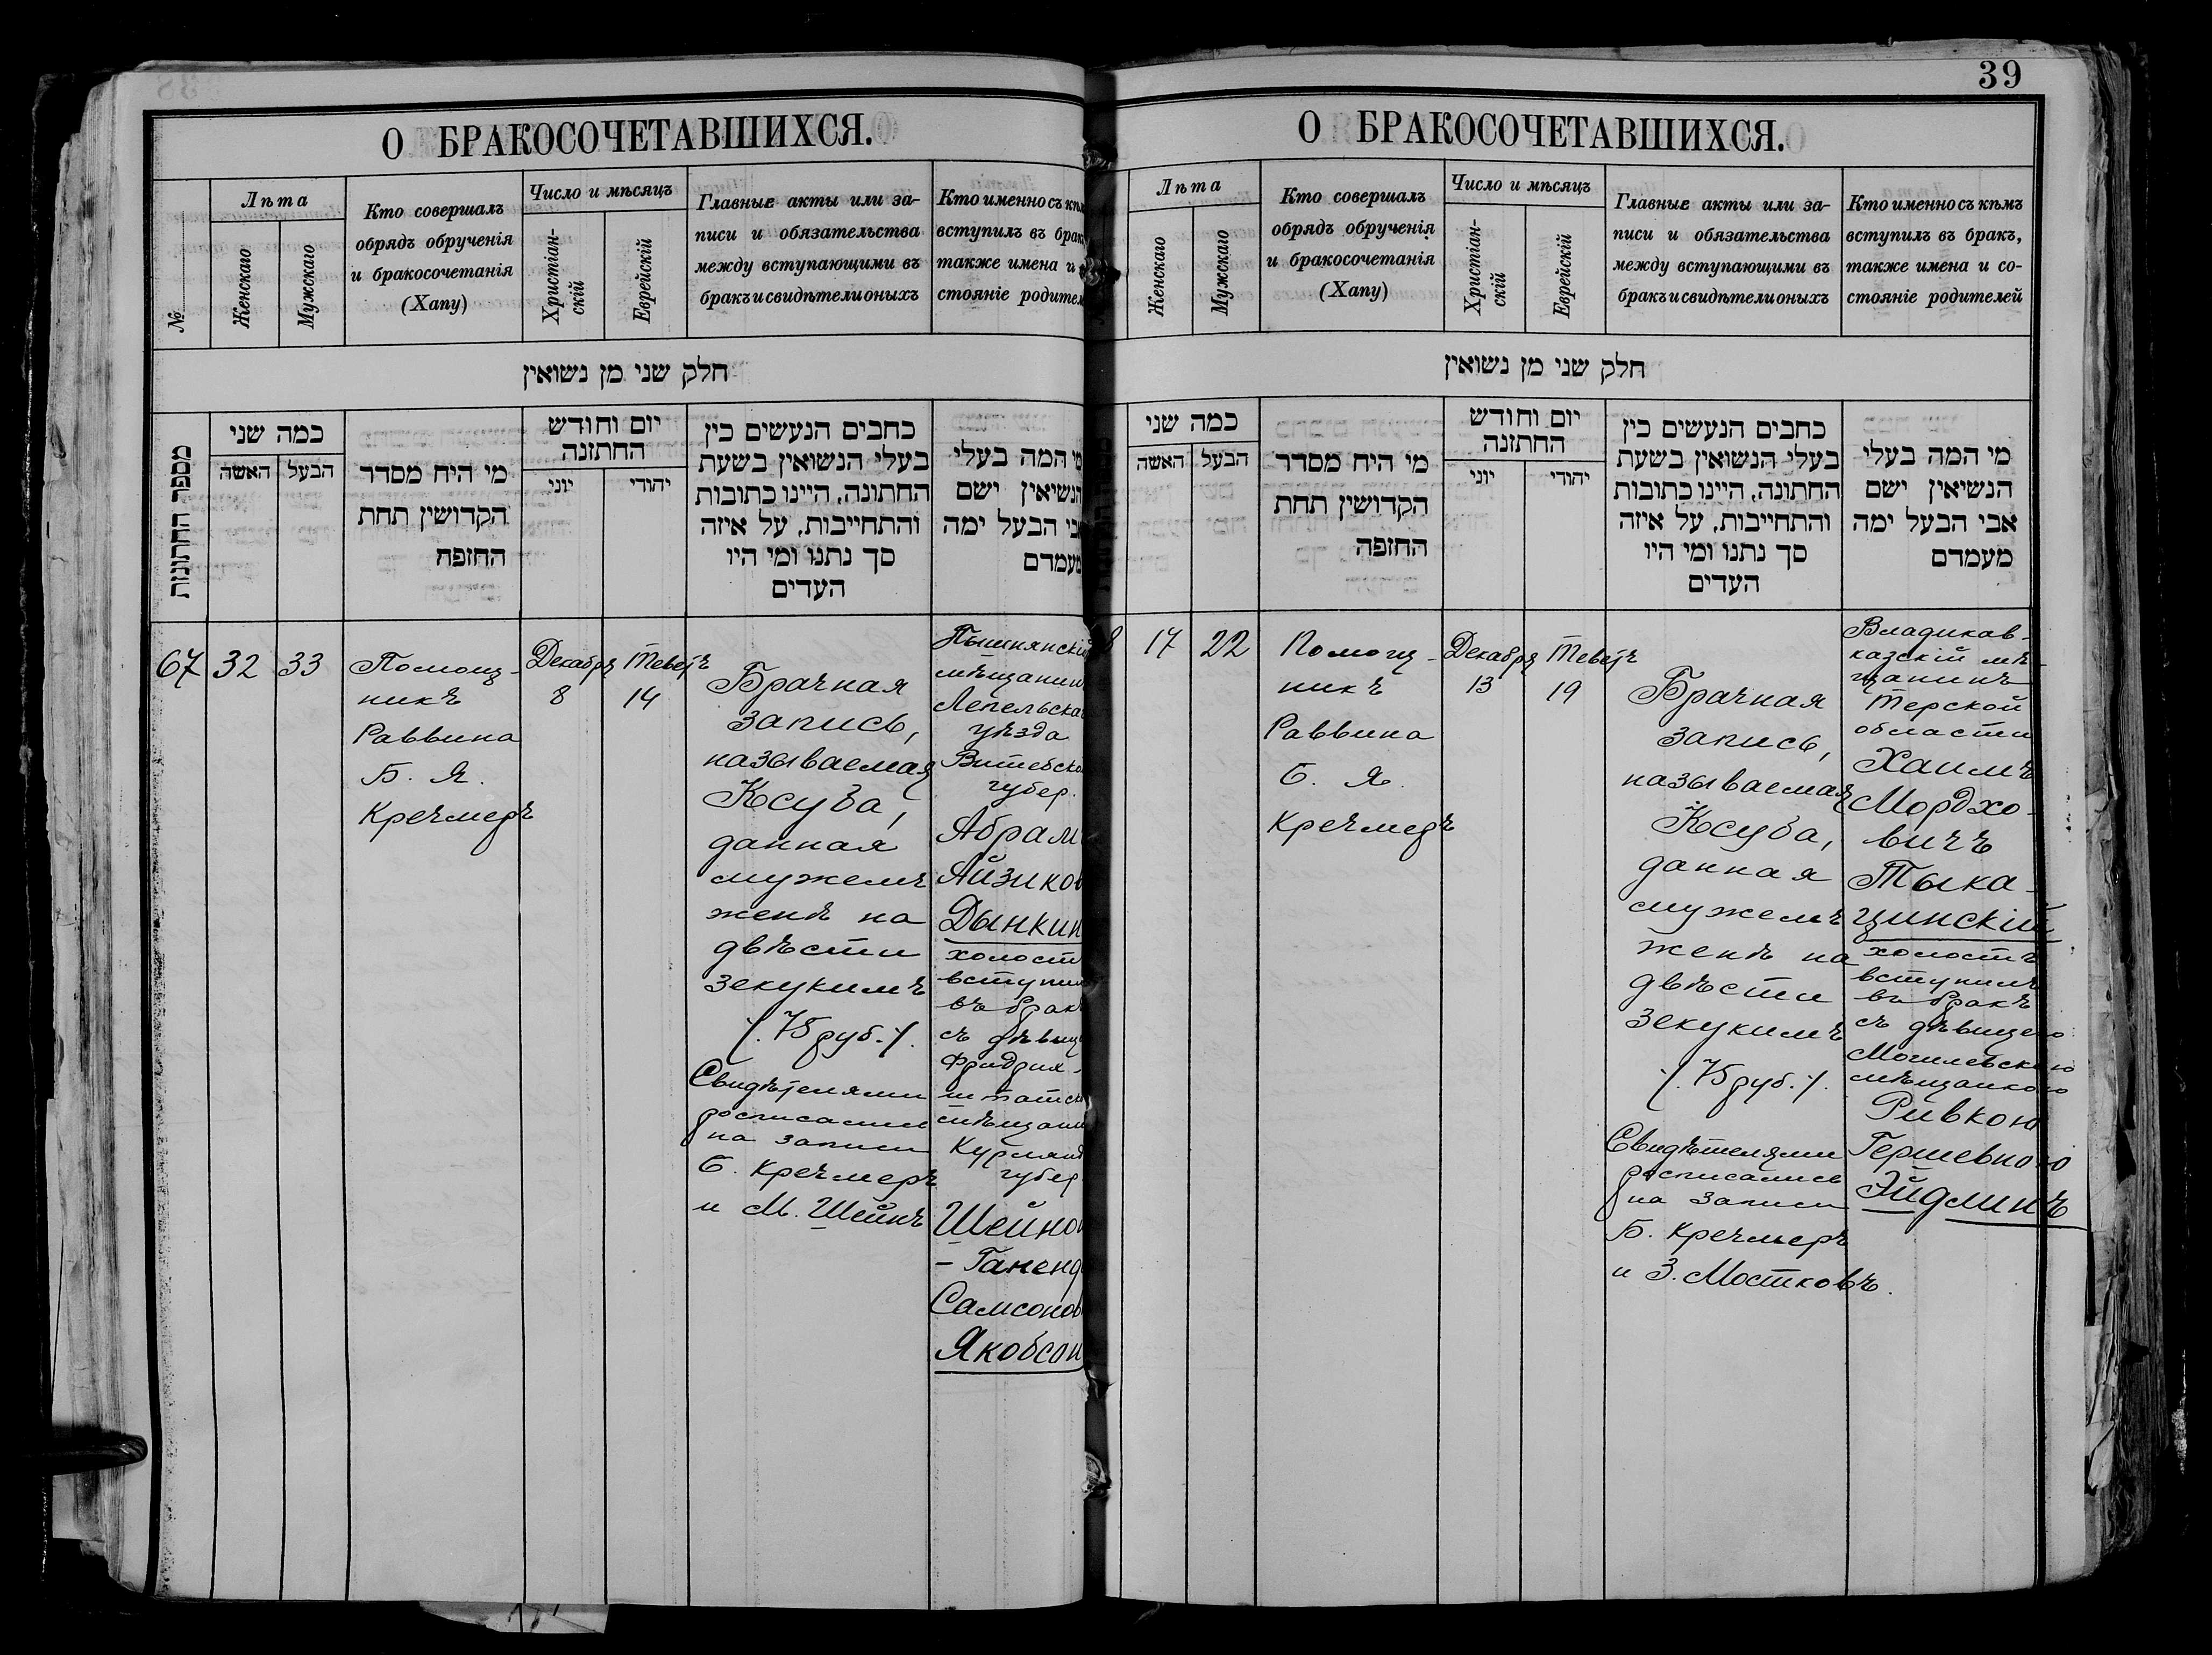 39
О БРАКОСОЧЕТАВШИХСЯ.
№
Лѣта
Женскаго
Мужскаго
Кто совершалъ
обрядъ обрученія
и бракосочетанія
(Хапу)
Число и мѣсяцъ
Христіан-
скій
Еврейскій
Главные акты или за-
писи и обязательства
между вступающими въ
бракъ и свидѣтели оныхъ
Кто именно съ кѣм
вступилъ въ брак
также имена и
стояніе родител
חלק שני מן נשואין
מספר החתונות
כמה שני
האשה
הבעל
מי היח מסדר
הקדושין תחת
החזפח
יום וחודש
החתזנה
יוני
יהודי
כחבים הנעשים כין
בעלי הנשואין בשעת
החתונה, היינו כתובות
והתחייבות, על איזה
סך נתנו ומי היו
העדים
מי המה בעלי
הנשיאין ישם
אבי הבעל ימה
מעמדם
67
32
33
Помощ-
никъ
Раввина
Б. Я.
Кречмеръ
Декабря
8
Теветъ
14
Брачная
запись,
называемая
Ксуба,
данная
мужемъ
женѣ на
двѣсти
зекукимъ
/. 75 руб. /.
Свидѣтелями
росписались
на записи
Б. Кречмеръ
и М. Шейнъ
Пышнянскій
мѣщанин
Лепельска
уѣзда
Витебско
губер.
Абрам
Айзиков
Дынкин
холост
вступил
въ брак
съ дѣвиц
Фридрих-
штатск
мѣщани
Курлянд
губер.
Шейно
- Ганенд
Самсонов
Якобсон
О БРАКОСОЧЕТАВШИХСЯ.
Лѣта
Женскаго
Мужскаго
Кто совершалъ
обрядъ обрученія
и бракосочетанія
(Хапу)
Число и мѣсяцъ
Христіан-
скій
Еврейскій
Главные акты или за-
писи и обязательства
между вступающими въ
бракъ и свидѣтели оныхъ
Кто именно съ кѣмъ
вступилъ въ бракъ,
также имена и со-
стояніе родителей
חלק שני מן נשואין
כמה שני
האשה
הבעל
מי היח מסדר
הקדושין תחת
החזפה
יום וחודש
החתזנה
יוני
יהודי
כחבים הנעשים כין
בעלי הנשואין בשעת
החתונה, היינו כתובות
והתחייבות, על איזה
סך נתנו ומי היו
העדים
מי המה בעלי
הנשיאין ישם
אבי הבעל ימה
מעמדם
8
17
22
Помощ-
никъ
Раввина
Б. Я.
Кречмеръ
Декабря
13
Теветъ
19
Брачная
запись,
называемая
Ксуба,
данная
мужемъ
женѣ на
двѣсти
зекукимъ
/. 75 руб. /.
Свидѣтелями
росписались
на записи
Б. Кречмеръ
и З. Мостковъ.
Владикав-
казскій мѣ-
щанинъ
Терской
области
Хаимъ
Мордхо-
вичъ
Тыка-
цинскій
холостъ
вступилъ
въ бракъ
съ дѣвицею
Могилевскою
мѣщанкою
Ривкою
Гершевною
Эйдлинъ